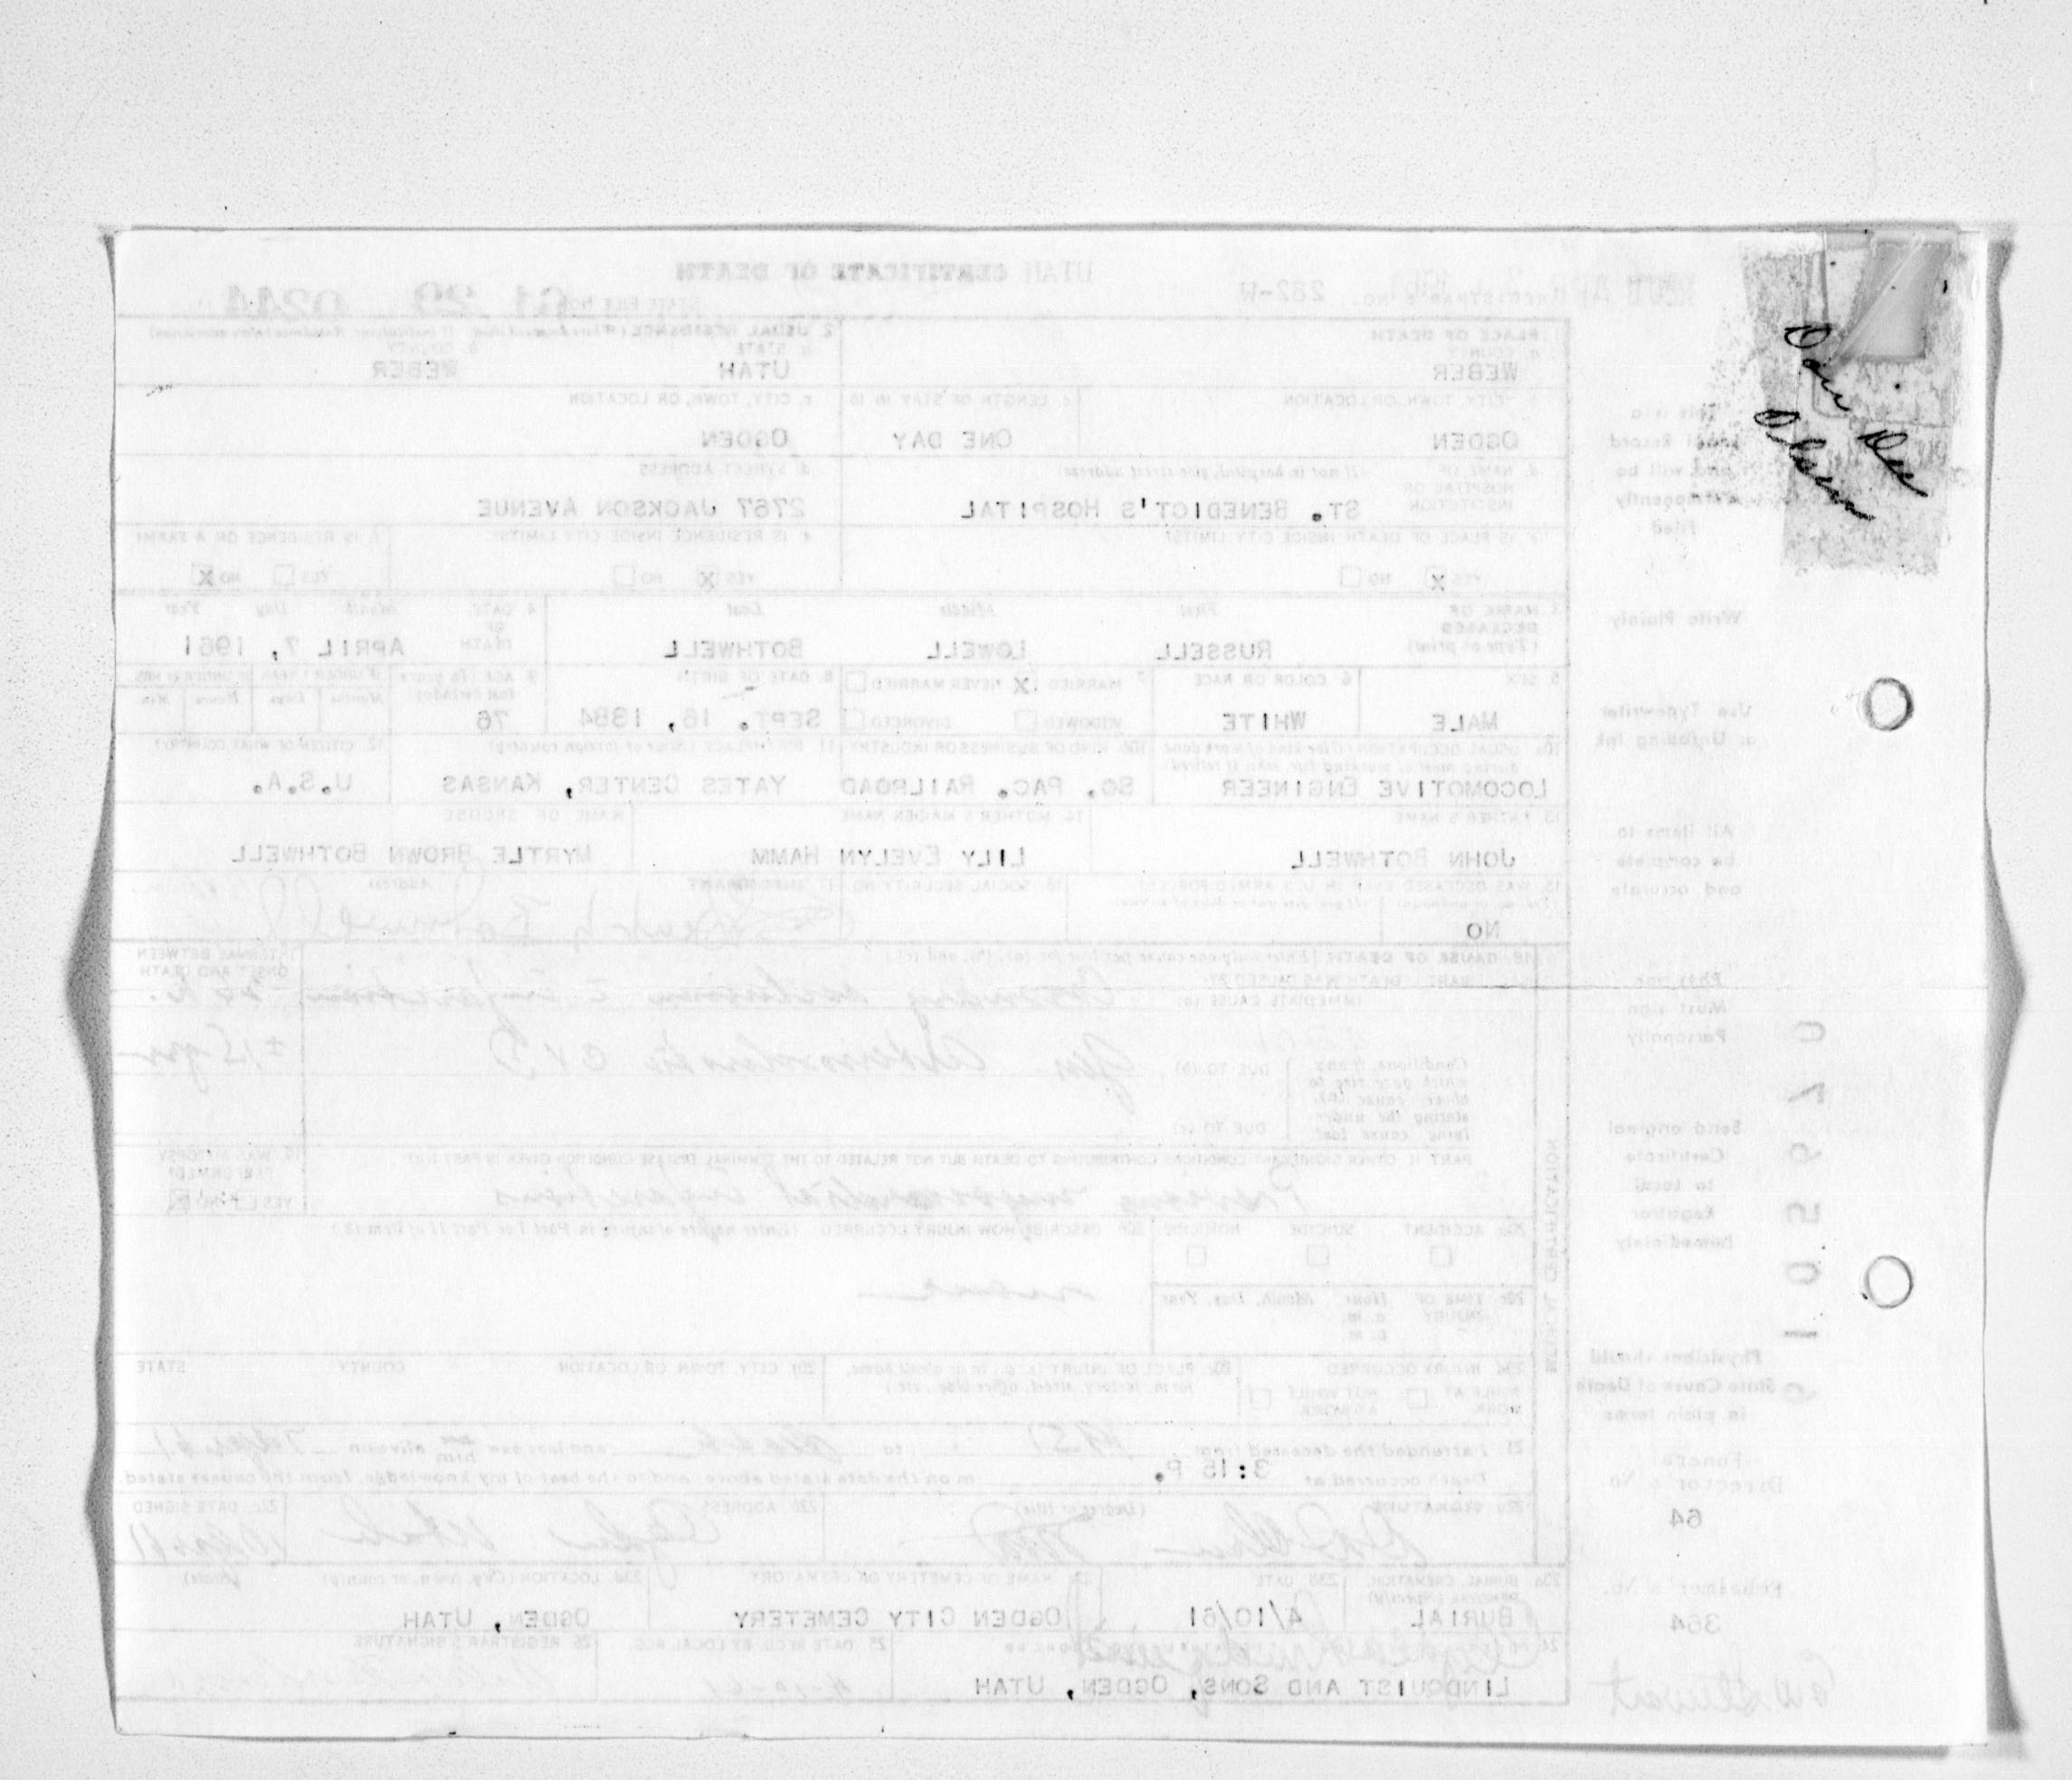 UTAH CERTIFICATE OF DEATH
REGISTRAR'S NO. 282-W
STATE FILE NO. 61 29 0244
1. PLACE OF DEATH
a. COUNTY
WEBER
2. USUAL RESIDENCE (Where deceased lived. If institution: Residence before admission)
a. STATE
UTAH
b. COUNTY
WEBER
b. CITY, TOWN, OR LOCATION
OGDEN
c. LENGTH OF STAY IN 1b
ONE DAY
c. CITY, TOWN, OR LOCATION
OGDEN
d. NAME OF HOSPITAL OR INSTITUTION
If not in hospital, give street address
ST. BENEDICT'S HOSPITAL
d. STREET ADDRESS
2767 JACKSON AVENUE
e. IS PLACE OF DEATH INSIDE CITY LIMITS?
YES X NO
e. IS RESIDENCE INSIDE CITY LIMITS?
YES X NO
f. IS RESIDENCE ON A FARM?
YES NO X
3. NAME OF DECEASED
(Type or print)
First Middle Last
RUSSELL LOWELL BOTHWELL
4. DATE OF DEATH
Month Day Year
APRIL 7, 1961
5. SEX
MALE
6. COLOR OR RACE
WHITE
7. MARRIED X NEVER MARRIED
WIDOWED DIVORCED
8. DATE OF BIRTH
SEPT. 16, 1884
9. AGE (In years last birthday)
76
IF UNDER 1 YEAR IF UNDER 24 HRS.
Months Days Hours Min.
10a. USUAL OCCUPATION (Give kind of work done during most of working life, even if retired)
LOCOMOTIVE ENGINEER
10b. KIND OF BUSINESS OR INDUSTRY
SO. PAC. RAILROAD
11. BIRTHPLACE (State or foreign country)
YATES CENTER, KANSAS
12. CITIZEN OF WHAT COUNTRY?
U.S.A.
13. FATHER'S NAME
JOHN BOTHWELL
14. MOTHER'S MAIDEN NAME
LILY EVELYN HAMM
NAME OF SPOUSE
MYRTLE BROWN BOTHWELL
15. WAS DECEASED EVER IN U.S. ARMED FORCES?
NO
16. SOCIAL SECURITY NO.
17. INFORMANT Address
18. CAUSE OF DEATH [Enter only one cause per line for (a), (b), and (c).]
PART I. DEATH WAS CAUSED BY:
IMMEDIATE CAUSE (a)
Coronary occlusion
INTERVAL BETWEEN ONSET AND DEATH
Conditions, if any, which gave rise to above cause (a), stating the underlying cause last
DUE TO (b)
DUE TO (c)
PART II. OTHER SIGNIFICANT CONDITIONS CONTRIBUTING TO DEATH BUT NOT RELATED TO THE TERMINAL DISEASE CONDITION GIVEN IN PART I(a)
Previous myocardial infarctions
19. WAS AUTOPSY PERFORMED?
YES NO
20a. ACCIDENT SUICIDE HOMICIDE
20b. DESCRIBE HOW INJURY OCCURRED. (Enter nature of injury in Part I or Part II of item 18.)
20c. TIME OF INJURY
Hour Month, Day, Year
a. m.
p. m.
20d. INJURY OCCURRED
WHILE AT WORK NOT WHILE AT WORK
20e. PLACE OF INJURY (e.g., in or about home, farm, factory, street, office bldg., etc.)
20f. CITY, TOWN, OR LOCATION COUNTY STATE
21. I attended the deceased from 1951 to death and last saw him alive on 7 Apr 61
Death occurred at 3:15 P. m on the date stated above, and to the best of my knowledge, from the causes stated.
22a. SIGNATURE (Degree or title)
22b. ADDRESS
Ogden Utah
22c. DATE SIGNED
23a. BURIAL, CREMATION, REMOVAL (Specify)
BURIAL
23b. DATE
4/10/61
23c. NAME OF CEMETERY OR CREMATORY
OGDEN CITY CEMETERY
23d. LOCATION (City, town, or county) (State)
OGDEN, UTAH
LINDQUIST AND SONS, OGDEN, UTAH
25. DATE RECD. BY LOCAL REG.
4-10-61
26. REGISTRAR'S SIGNATURE
MEDICAL CERTIFICATION
This is a Legal Record and will be Permanently Filed
Write Plainly
Use Typewriter or Unfading Ink
All items to be complete and accurate
Physician Must sign Personally
Send original Certificate to Local Registrar immediately
Physicians should State Cause of Death in plain terms
Funeral Director's No.
64
Embalmer's No.
364
Dow Dee
Olsen